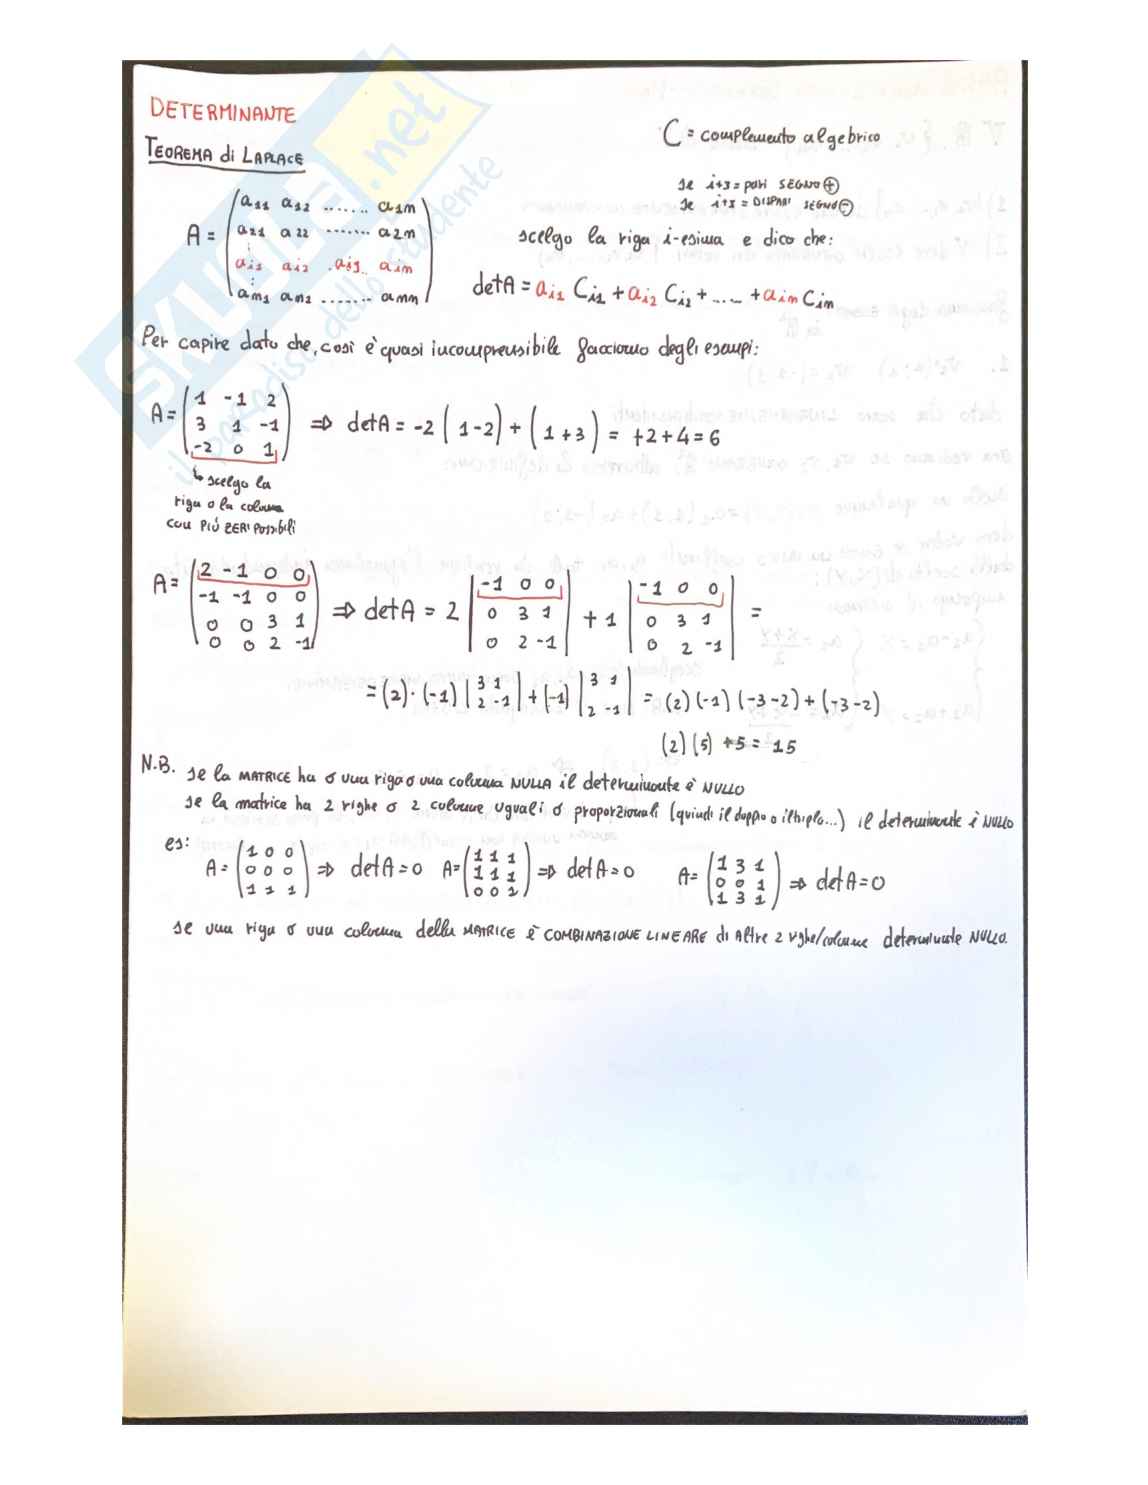 DETERMINANTE
TEOREMA di LAPLACE
C = complemento algebrico
se i+j = pari SEGNO ⊕
se i+j = DISPARI SEGNO ⊖
A = ( a11 a12 ....... a1m
a21 a22 ....... a2m
ai1 ai2 .aij.. aim
am1 am2 ....... amm )
scelgo la riga i-esima e dico che:
detA = ai1 Ci1 + ai2 Ci2 + ..... + aim Cim
Per capire dato che, così è quasi incomprensibile facciamo degli esempi:
A = ( 1 -1 2
3 1 -1
-2 0 1 ) ⇒ detA = -2 ( 1-2) + ( 1+3 ) = +2+4 = 6
↳ scelgo la
riga o la colonna
con PIÙ ZERI POSSIBILI
A = ( 2 -1 0 0
-1 -1 0 0
0 0 3 1
0 0 2 -1 ) ⇒ detA = 2 | -1 0 0
0 3 1
0 2 -1 | + 1 | -1 0 0
0 3 1
0 2 -1 | =
= (2)·(-1) | 3 1
2 -1 | + (-1) | 3 1
2 -1 | = (2)(-1)(-3-2) + (-3-2)
(2)(5) +5 = 15
N.B. se la MATRICE ha o una riga o una colonna NULLA il determinante è NULLO
se la matrice ha 2 righe o 2 colonne uguali o proporzionali (quindi il doppio o il triplo...) il determinante è NULLO
es:
A = ( 1 0 0
0 0 0
1 1 1 ) ⇒ detA = 0 A = ( 1 1 1
1 1 1
0 0 1 ) ⇒ detA = 0 A = ( 1 3 1
0 0 1
1 3 1 ) ⇒ detA = 0
se una riga o una colonna della MATRICE è COMBINAZIONE LINEARE di Altre 2 righe/colonne determinante NULLO.
SKUOLA.net
il paradiso dello studente